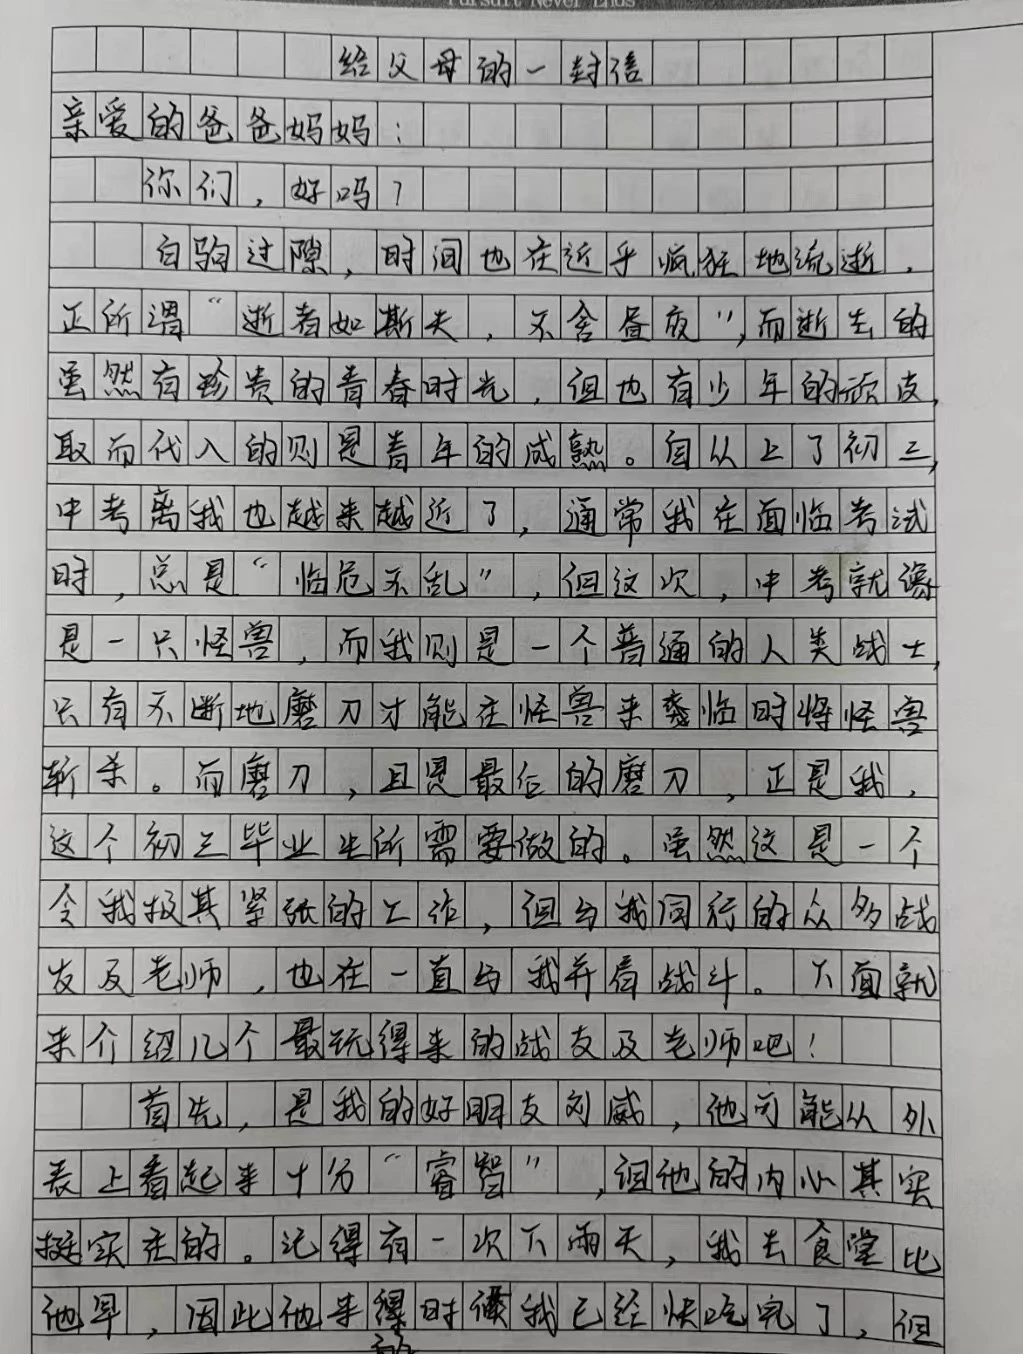 Pursuit Never Ends
给父母的一封信
亲爱的爸爸妈妈：
你们，好吗？
白驹过隙，时间也在近乎疯狂地流逝，
正所谓“逝者如斯夫，不舍昼夜”，而逝去的
虽然有珍贵的青春时光，但也有少年的顽皮，
取而代入的则是青年的成熟。自从上了初三，
中考离我也越来越近了，通常我在面临考试
时，总是“临危不乱”，但这次，中考就像
是一只怪兽，而我则是一个普通的人类战士，
只有不断地磨刀才能在怪兽来临时将怪兽
斩杀。而磨刀，且是最后的磨刀，正是我，
这个初三毕业生所需要做的。虽然这是一个
令我极其紧张的工作，但与我同行的众多战
友及老师，也在一直与我并肩战斗。下面就
来介绍几个最玩得来的战友及老师吧！
首先，是我的好朋友刘威，他可能从外
表上看起来十分“睿智”，但他的内心其实
挺实在的。记得有一次下雨天，我去食堂比
他早，因此他来得时候我已经快吃完了，但
的